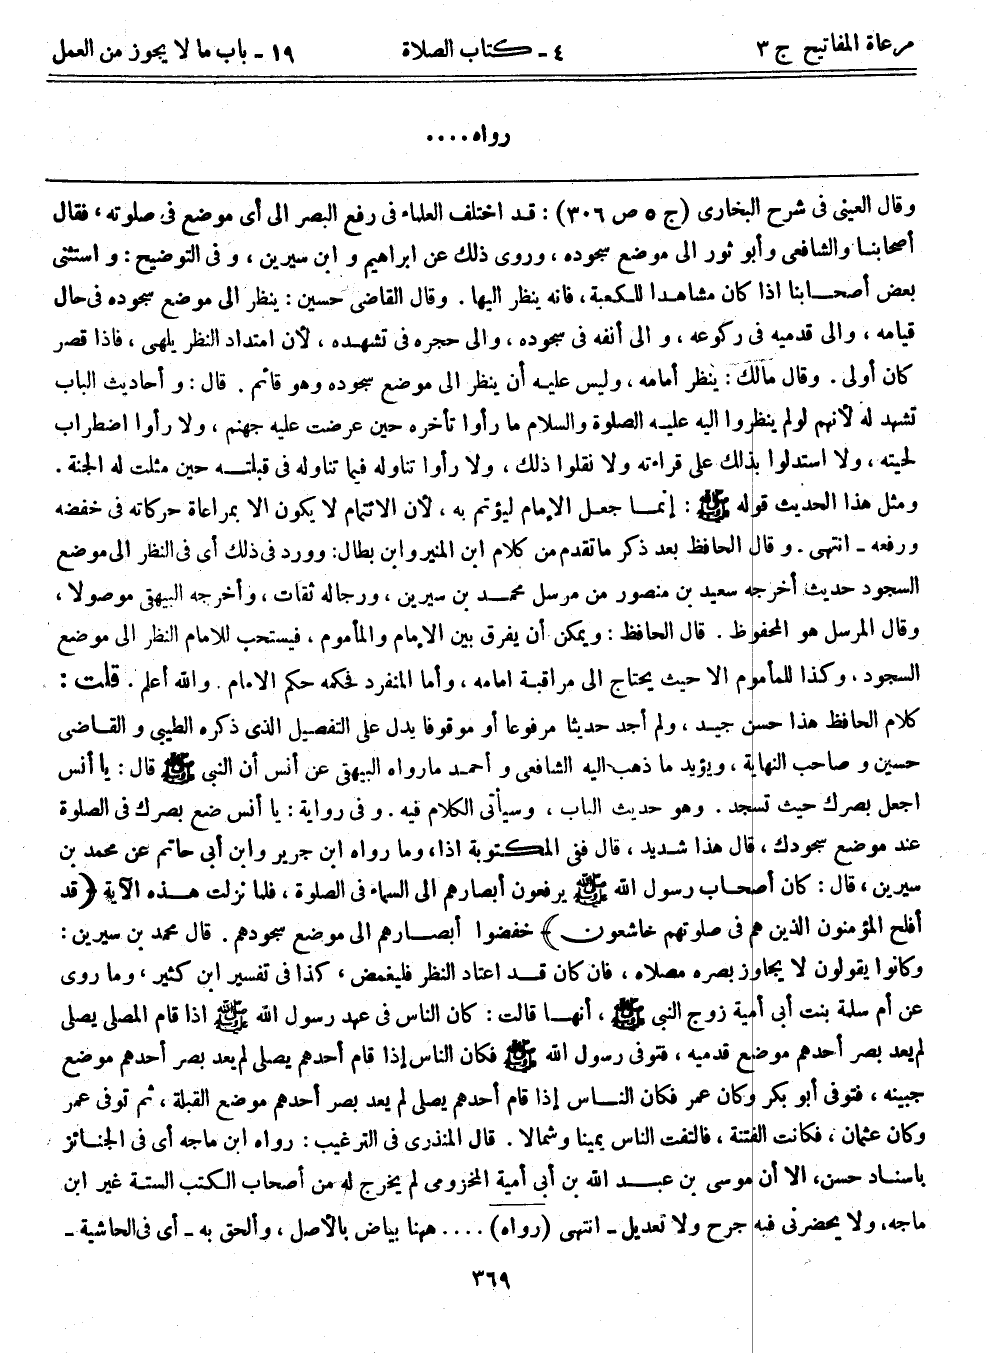 مرعاة المفاتيح ج ٣
٤ ـ كتاب الصلاة
١٩ ـ باب ما لا يجوز من العمل
رواه ....
وقال العينى فى شرح البخارى (ج ٥ ص ٣٠٦) : قد اختلف العلماء فى رفع البصر الى أى موضع فى صلوته ، فقال
أصحابنا والشافعى وأبو ثور الى موضع سجوده ، وروى ذلك عن ابراهيم و ابن سيرين ، و فى التوضيح : و استثنى
بعض أصحابنا اذا كان مشاهدا للكعبة ، فانه ينظر اليها . وقال القاضى حسين : ينظر الى موضع سجوده فى حال
قيامه ، والى قدميه فى ركوعه ، و الى أنفه فى سجوده ، والى حجره فى تشهده ، لأن امتداد النظر يلهى ، فاذا قصر
كان أولى . وقال مالك : ينظر أمامه ، وليس عليه أن ينظر الى موضع سجوده وهو قائم . قال : و أحاديث الباب
تشهد له لأنهم لو لم ينظروا اليه عليه الصلوة والسلام ما رأوا تأخره حين عرضت عليه جهنم ، ولا رأوا اضطراب
لحيته ، ولا استدلوا بذلك على قراءته ولا نقلوا ذلك ، ولا رأوا تناوله فيما تناوله فى قبلته حين مثلت له الجنة .
ومثل هذا الحديث قوله ﷺ : إنما جعل الإمام ليؤتم به ، لأن الائتمام لا يكون الا بمراعاة حركاته فى خفضه
ورفعه ـ انتهى . و قال الحافظ بعد ذكر ما تقدم من كلام ابن المنير وابن بطال: وورد فى ذلك أى فى النظر الى موضع
السجود حديث أخرجه سعيد بن منصور من مرسل محمد بن سيرين ، ورجاله ثقات ، وأخرجه البيهقى موصولا ،
وقال المرسل هو المحفوظ . قال الحافظ : ويمكن أن يفرق بين الإمام والمأموم ، فيستحب للامام النظر الى موضع
السجود ، وكذا للمأموم الا حيث يحتاج الى مراقبة امامه ، وأما المنفرد فحكمه حكم الامام . والله أعلم . قلت :
كلام الحافظ هذا حسن جيد ، ولم أجد حديثا مرفوعا أو موقوفا يدل على التفصيل الذى ذكره الطيبى و القاضى
حسين و صاحب النهاية ، ويؤيد ما ذهب اليه الشافعى و أحمد مارواه البيهقى عن أنس أن النبى ﷺ قال : يا أنس
اجعل بصرك حيث تسجد . وهو حديث الباب ، وسيأتى الكلام فيه . و فى رواية : يا أنس ضع بصرك فى الصلوة
عند موضع سجودك ، قال هذا شديد ، قال ففى المكتوبة اذا، وما رواه ابن جرير وابن أبى حاتم عن محمد بن
سيرين ، قال : كان أصحاب رسول الله ﷺ يرفعون أبصارهم الى السماء فى الصلوة ، فلما نزلت هذه الآية ﴿ قد
أفلح المؤمنون الذين هم فى صلوتهم خاشعون ﴾ خفضوا أبصارهم الى موضع سجودهم . قال محمد بن سيرين :
وكانوا يقولون لا يجاوز بصره مصلاه ، فان كان قد اعتاد النظر فليغمض ، كذا فى تفسير ابن كثير ، وما روى
عن أم سلمة بنت أبى أمية زوج النبى ﷺ ، أنها قالت : كان الناس فى عهد رسول الله ﷺ اذا قام المصلى يصلى
لم يعد بصر أحدهم موضع قدميه ، فتوفى رسول الله ﷺ فكان الناس إذا قام أحدهم يصلى لم يعد بصر أحدهم موضع
جبينه ، فتوفى أبو بكر وكان عمر فكان الناس إذا قام أحدهم يصلى لم يعد بصر أحدهم موضع القبلة ، ثم توفى عمر
وكان عثمان ، فكانت الفتنة ، فالتفت الناس يمينا وشمالا . قال المنذرى فى الترغيب : رواه ابن ماجه أى فى الجنائز
باسناد حسن، الا أن موسى بن عبد الله بن أبى أمية المخزومى لم يخرج له من أصحاب الكتب الستة غير ابن
ماجه، ولا يحضرنى فيه جرح ولا تعديل ـ انتهى (رواه) .... ههنا بياض بالأصل ، وألحق به ـ أى فى الحاشية ـ
٣٦٩